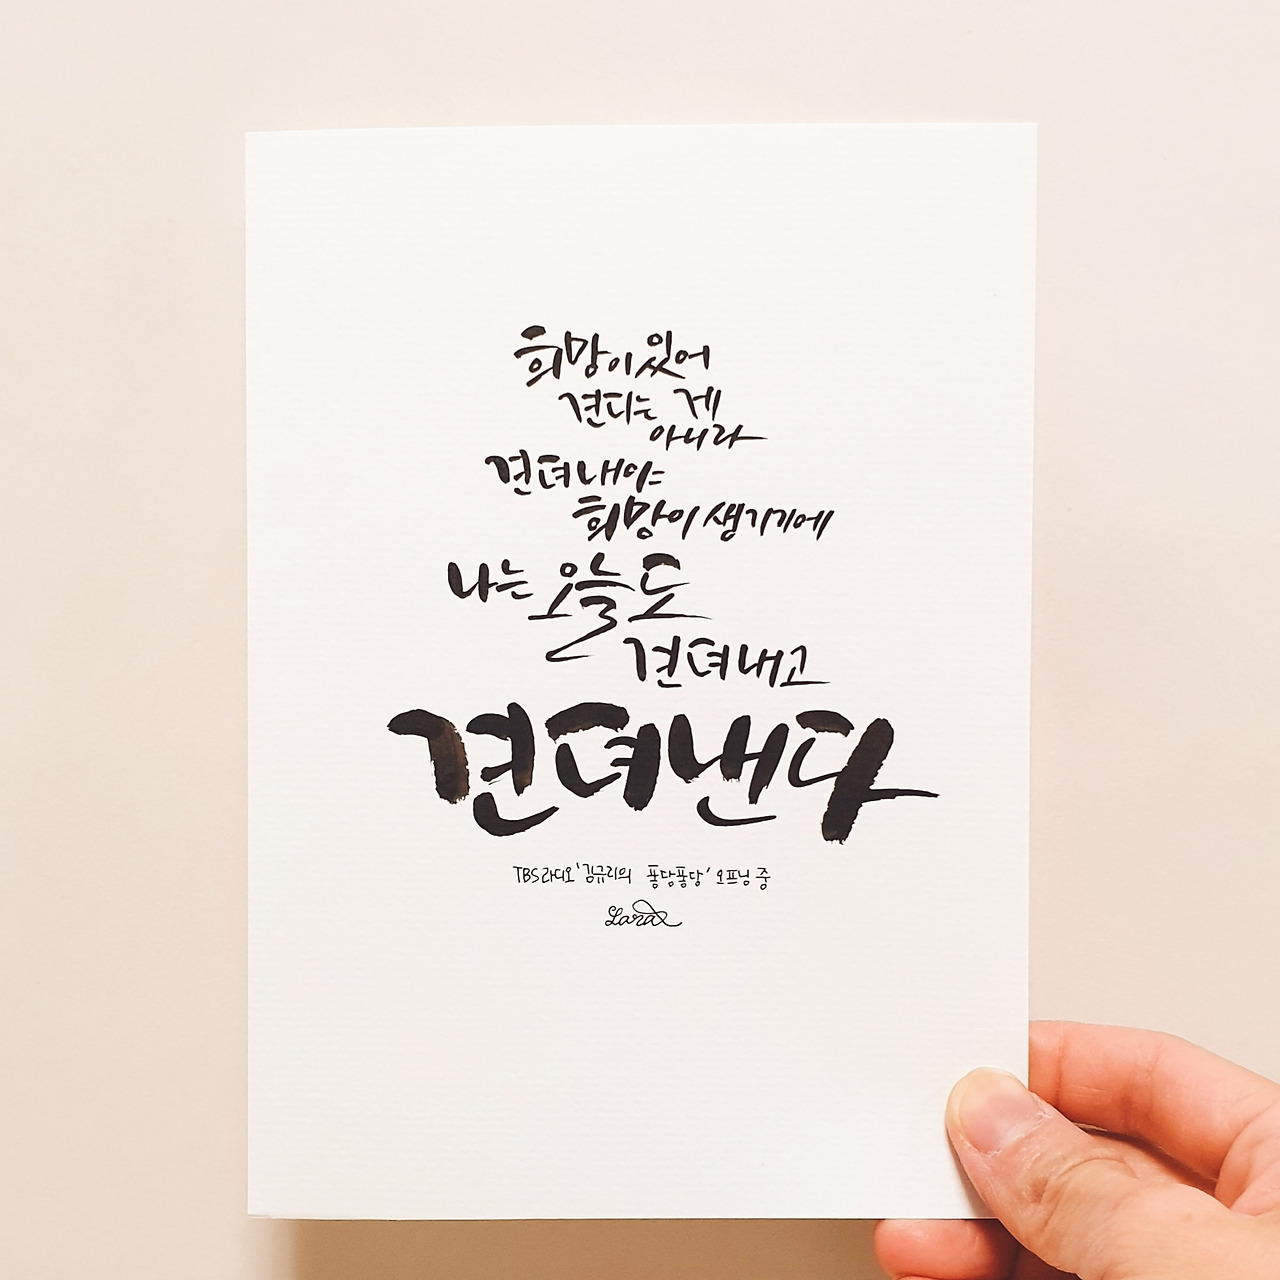 희망이 있어
견디는 게
아니라
견뎌내야
희망이 생기기에
나는 오늘도
견뎌내고
견뎌낸다
TBS 라디오 '김규리의 퐁당퐁당' 오프닝 중
Lara